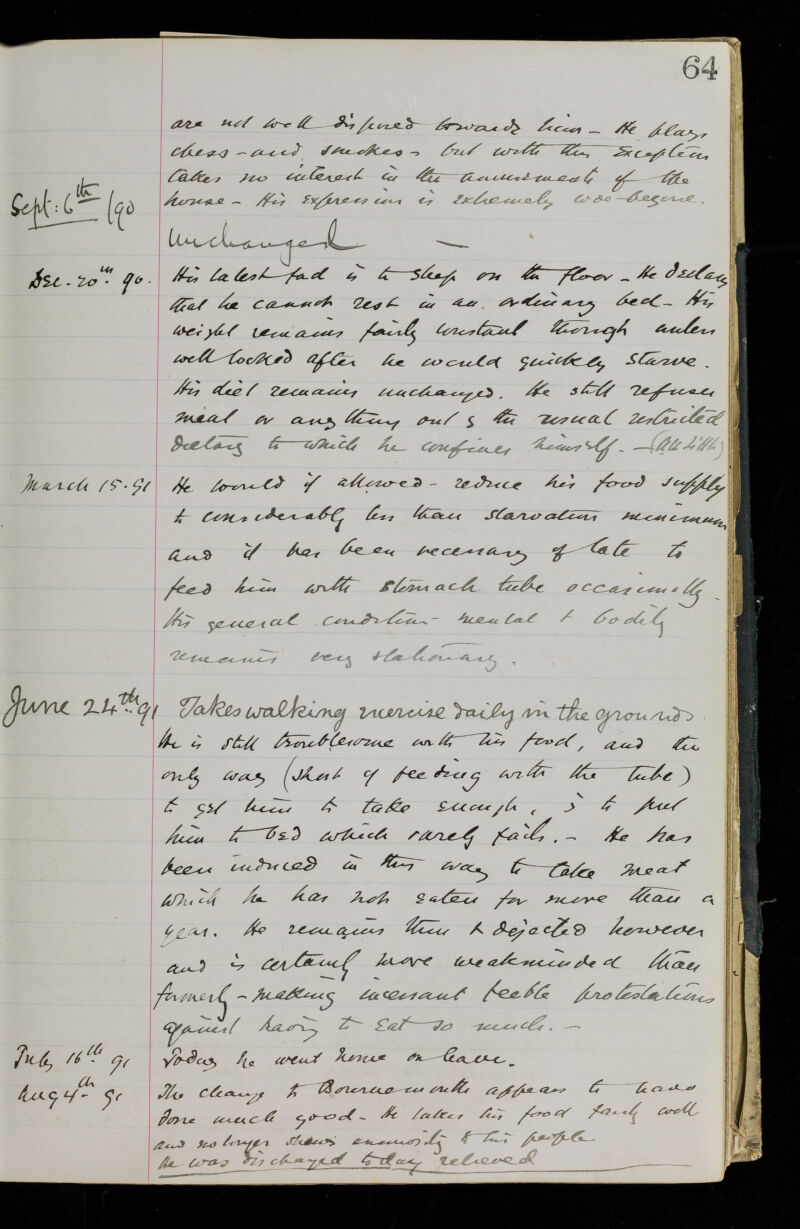 64
are not well disposed towards him - He plays
chess - and smokes - but with this exception
takes no interest in the amusements of the
house - His expression is extremely woe-begone.
Sept: 6th /90
Unchanged -
Dec. 20th 90. His latest fad is to sleep on the floor - He declares
that he cannot rest in an ordinary bed - His
weight remains fairly constant though unless
well looked after he would quickly starve.
His diet remains unchanged. He still refuses
meat or anything out of the usual restricted
dietary to which he confines himself. -
March 15. 91 He would if allowed - reduce his food supply
to considerably less than starvation minimum
and it has been necessary of late to
feed him with stomach tube occasionally -
His general condition - mental & bodily
remains very stationary.
June 24th. 91 Takes walking exercise daily in the grounds.
He is still troublesome with his food, and the
only way (short of feeding with the tube)
to get him to take enough, is to put
him to bed which rarely fails. - He has
been induced in this way to take meat
which he has not eaten for more than a
year. He remains thin & dejected however
and is certainly more weakminded than
formerly - making incessant feeble protestations
against having to eat so much. -
July 16th 91 Today he went home on leave.
Aug 4th 91 The change to Bournemouth appears to have
done much good - He takes his food fairly well
and no longer shews animosity to his people
He was discharged today relieved